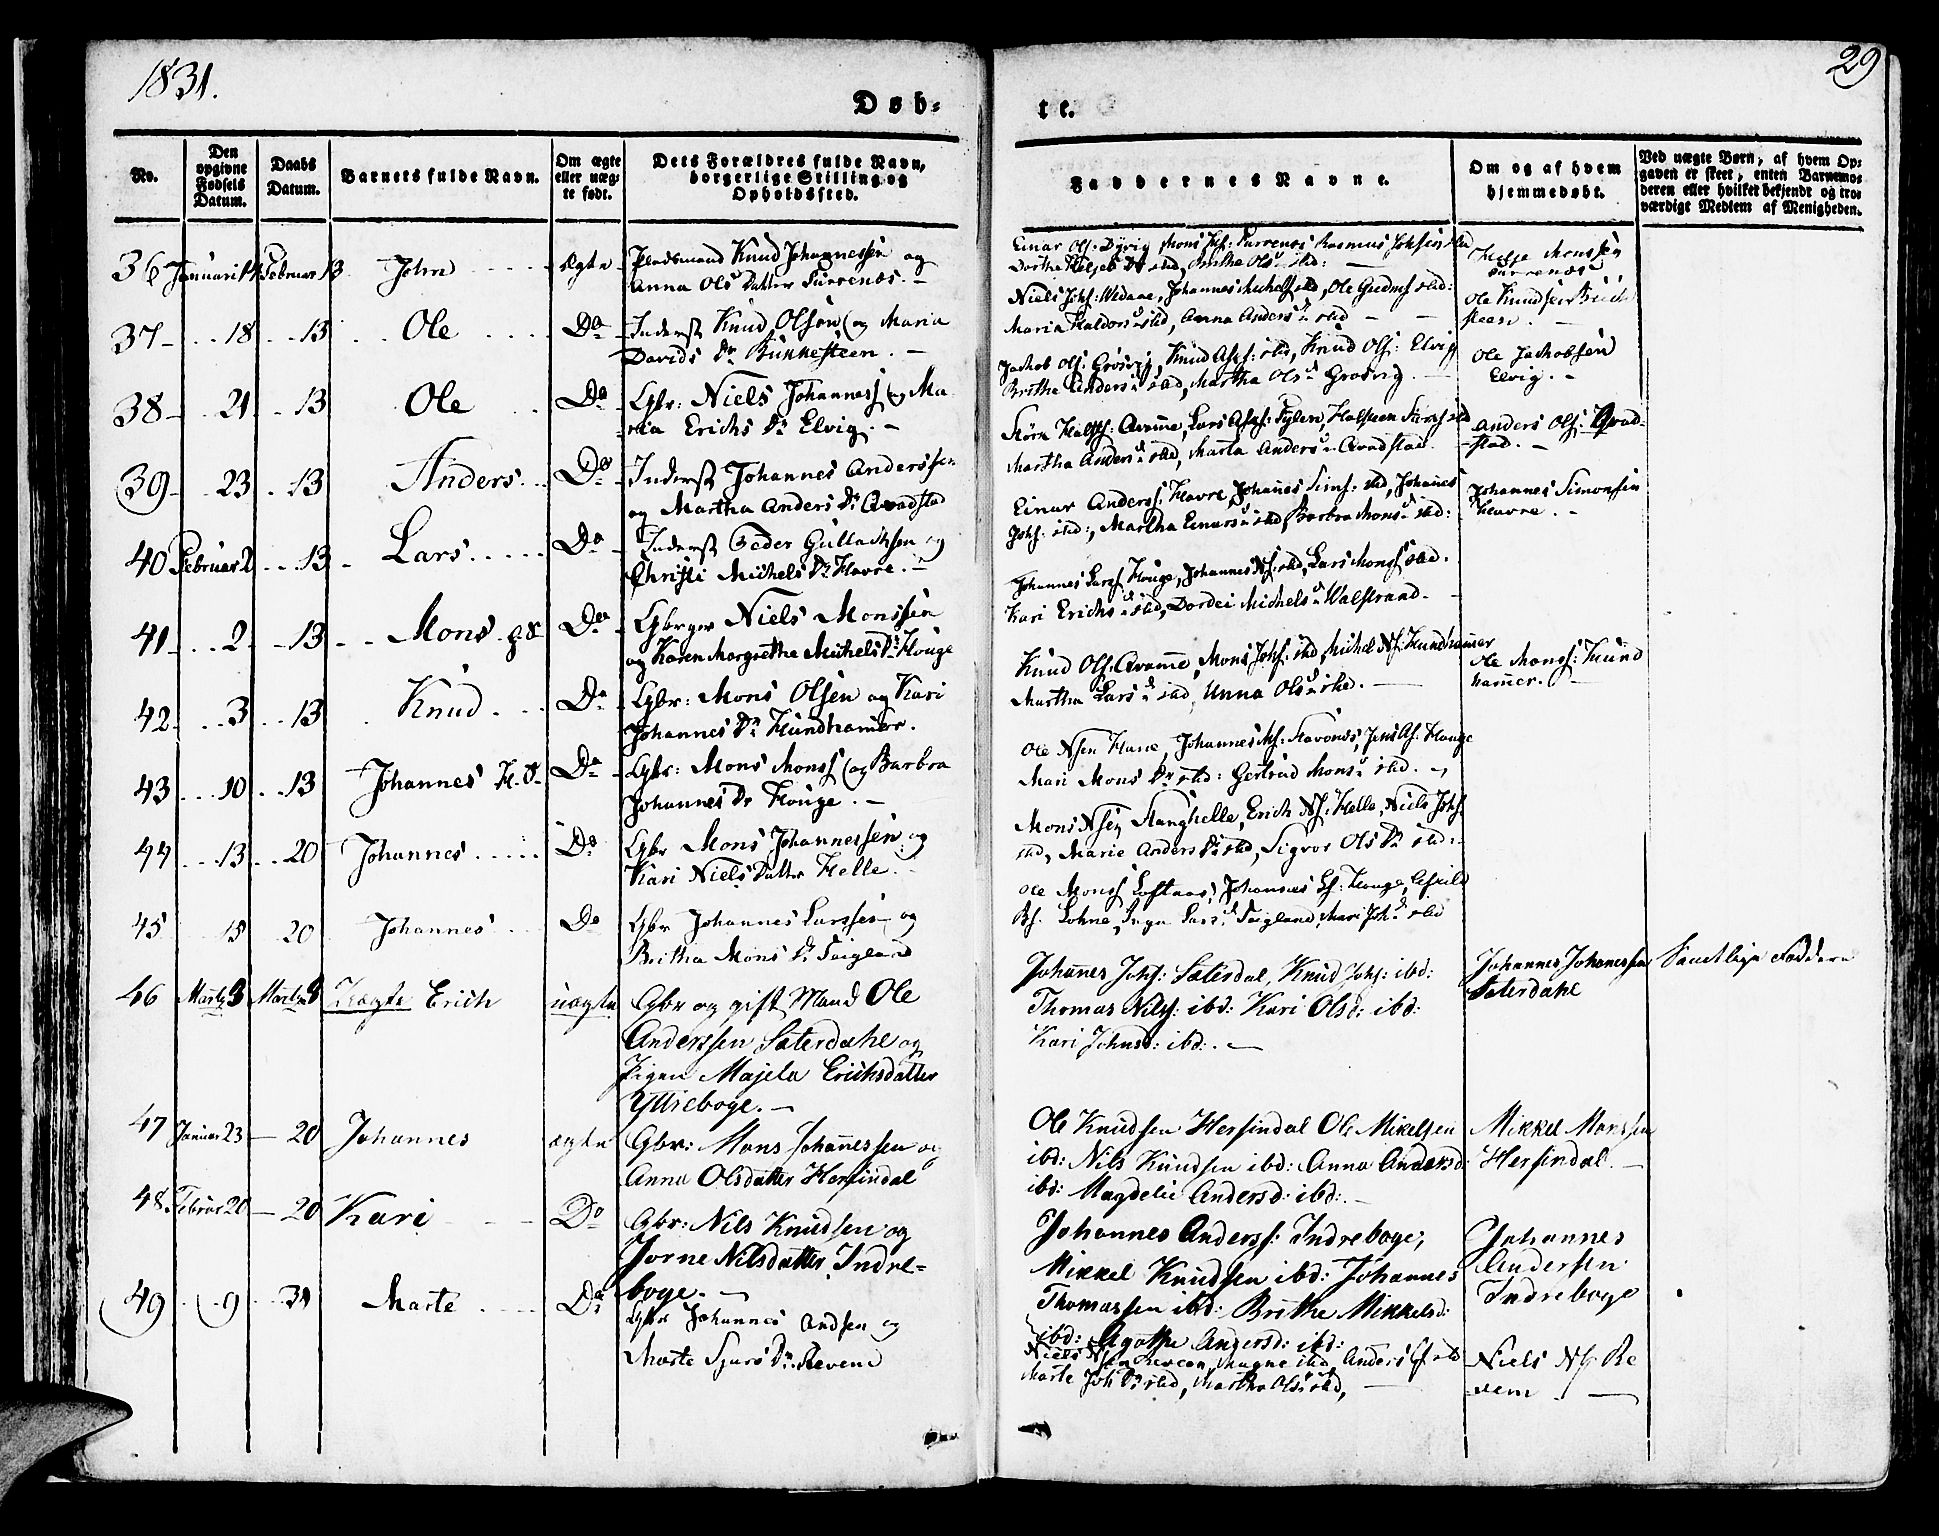 1831.
29
Døb-
te.
No.
Den opgivne Fødsels Datum.
Daabs Datum.
Barnets fulde Navn.
Om ægte eller uægte født.
Dets Forældres fulde Navn, borgerlige Stilling og Opholdssted.
Faddernes Navne.
Om og af hvem hjemmedøbt.
Ved uægte Børn, af hvem Opgaven er skeet, enten Barnemoderen eller hvilket bekjendt og troværdigt Medlem af Menigheden.
36 Januari 14 Februar 13 John ægte Pladsmand Knud Johannessen og
Anna Ols Datter Furrenæs.
Einar Ols: Dyvig Mons Joh: Furrenæs Rasmus
Helje Monssen
Furrenæs
37 18 13 Ole Do Inderst Knud Olsen og Maria
Davids Dr Bukkesteen.
Niels Johs: Johannes Ole
Maria Haldors d sted, Anna Anders d sted
Ole Knudsen
steen.
38 21 13 Ole Do Gbr: Niels Johanness og Ma-
ria Erichs Dr Elvig.
Jackob Ols: Grosvig, Knud sted, Knud Ols: Elvig
Brithe Anders d sted, Martha Ols d Grosvig.
Ole Jackobsen
Elvig.
39 23 13 Anders Do Inderst Johannes Anderssen
og Martha Anders Dr Qvadstad
Martha Anders d sted, Marta Anders d Qvadstad.
Anders Ols: Qvad-
stad.
40 Februar 2 13 Lars Do Inderst Peder Gullachsen og
Christi Michels Dr Havre.
Einar Anderss: Havre, Johanes Sims: sted, Johanes
Johs: sted:, Martha Einars d sted, Barbra Mons d sted:
Johannes Simonsen
Havre.
41 2 13 Mons Do Gbr Niels Monssen
og Karen Margrethe Michels Dr Houge
Johannes Larss Houge, Johannes Ns: sted, Lars Monss sted.
Kari Erichs d sted, Dordei Michels d Walstrand.
42 3 13 Knud Do Gbr: Mons Olsen og Kari
Johannes Dr Hundhamer.
Knud Ols: Qvamme, Mons Johs: sted, Michel Ns: Hundhammer
Martha Lars d sted, Anna Ols d sted.
Ole Monss: Hund
hamer.
43 10 13 Johannes H.D. Do Gbr: Mons Monss og Barbra
Johannes Dr Houge.
Ole Nsen Johannes Houge
Mari Mons Dr sted: Gertrud Mons d sted.
44 13 20 Johannes Do Gbr Mons Johannessen og
Kari Niels Datter Helle.
Mons Nsen Stanghelle, Erich Ns: Helle, Niels Johs
sted, Marie Anders Dr sted, Sigvor Ols Dr sted:
45 15 20 Johannes Do Gbr Johannes Larssen og
Britha Mons Dr Taigland
Ole Monss Loftaas, Johannes Ls: Houge,
Lohne, Inga Lars d Taigland, Mari Joh d sted
46 Martz 3 Martz Uægte Erich uægte Gbr og gift Mand Ole
Anderssen Sæterdahl og
Pigen Majela Erichsdatter
Yttreboge.
Johanes Johs: Sæterdal, Knud Johs: ibd:
Thomas Nils: ibd: Kari Olsd: ibd:
Kari Johnsd: ibd:
Johannes Johannessen
Sæterdahl
Samtlige Faddere
47 Januar 23 20 Johannes ægte Gbr: Mons Johannessen og
Anna Olsdatter Hersindal
Ole Knudsen Hersindal Ole Mikelsen
ibd: Nils Knudsen ibd: Anna Andersd:
ibd: Magdeli Andersd: ibd:
Mikkel Monssen
Hersindal.
48 Februar 20 20 Kari Do Gbr: Nils Knudsen og
Jorne Nilsdatter Indre-
boge.
Johannes Anderss: Indreboge,
Mikkel Knudsen ibd: Johannes
Thomassen ibd: Brithe Mikkelsd:
ibd: Agathe Andersd: ibd:
Johannes
Andersen
Indreboge
49 9 31 Marte Do Gbr Johannes Andsen og
Marte Sjurs Dr Revem
Niels Nsen Magne sted, Anders sted
Marte Joh Dr sted, Martha Ols d sted,
Niels Ns Re
vem